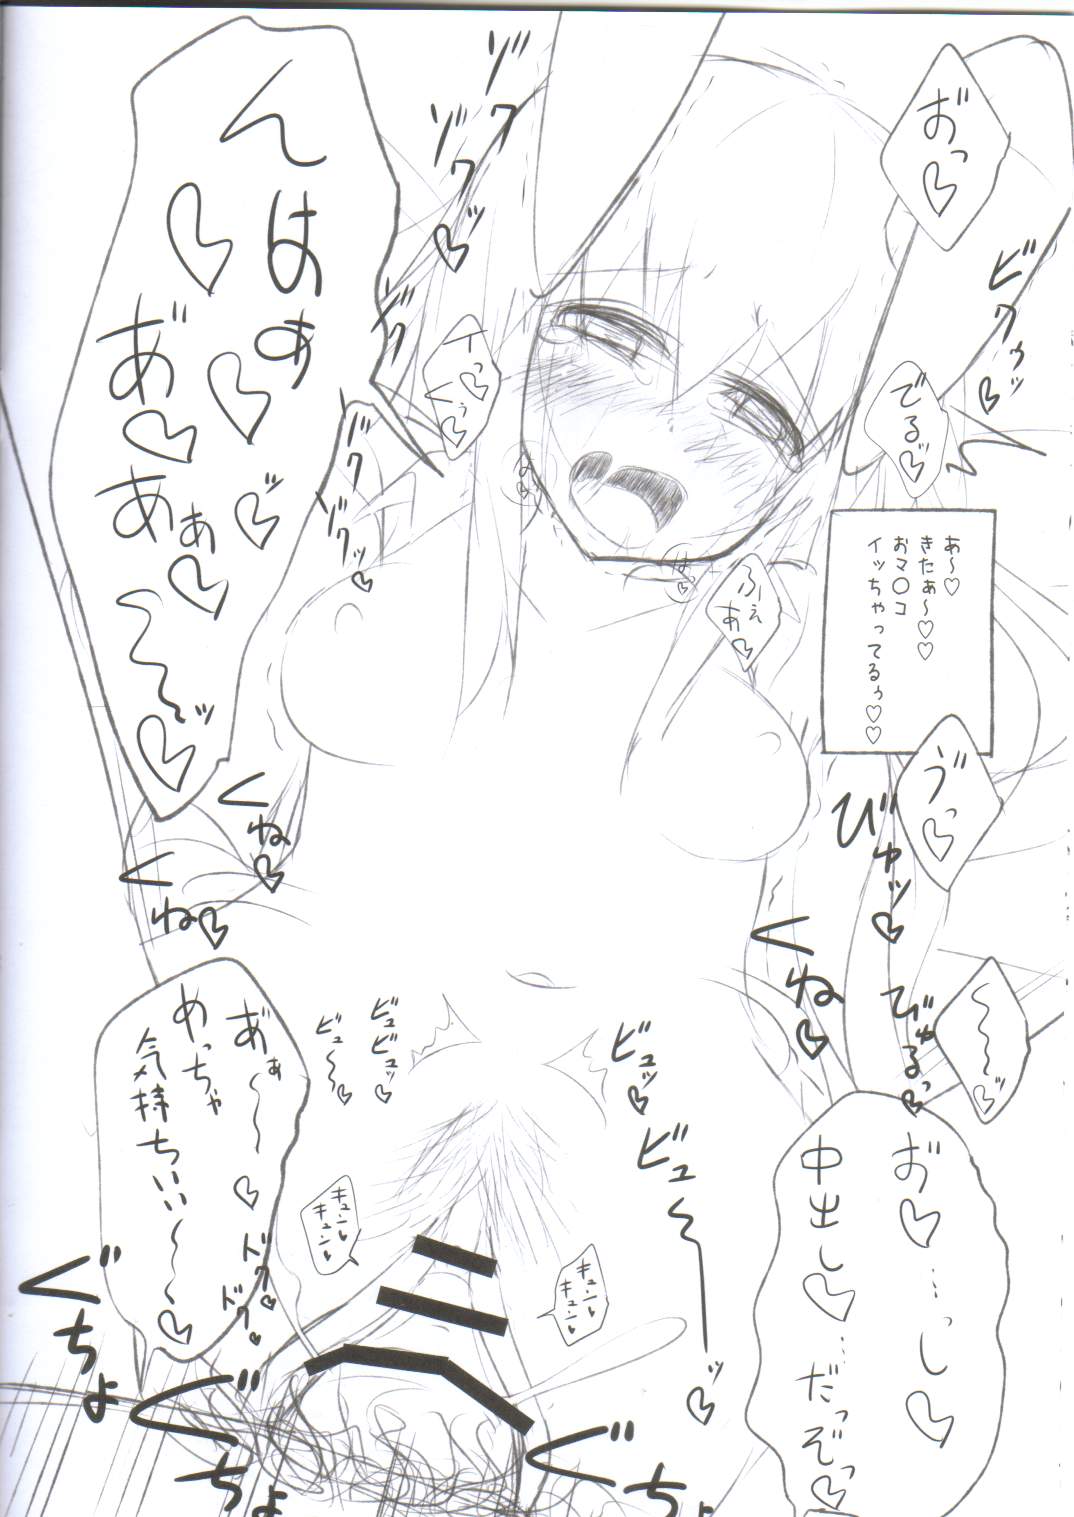 おっ♡
ゾクゾクッ♡
んはぁ♡♡
あ゛♡あぁ♡〜〜ッ♡
ビクゥッ♡
でるッ♡
イっくぅ♡
ゾクゾクゾクッ♡
はっ♡
はっ♡
ふぇあ♡
あ〜♡
きたぁ〜♡♡
おマ○コ
イッちゃってるぅ♡♡
う゛っ♡
くね♡
くね♡
びゅッ♡
びゅるっ♡
くね♡
〜〜〜ッ♡
あ゛ぁ〜〜♡
めっちゃ
気持ちいい〜〜♡
ビュビュッ♡
ビュ〜〜♡
ビュッ♡
ビュ〜〜ッ♡
お゛♡…し♡
中出し♡…だっぞっ♡
キュン♡
キュン♡
キュン♡
キュン♡
ドク♡
ドク♡
ぐちょ
ぐちょ
ぐちょ